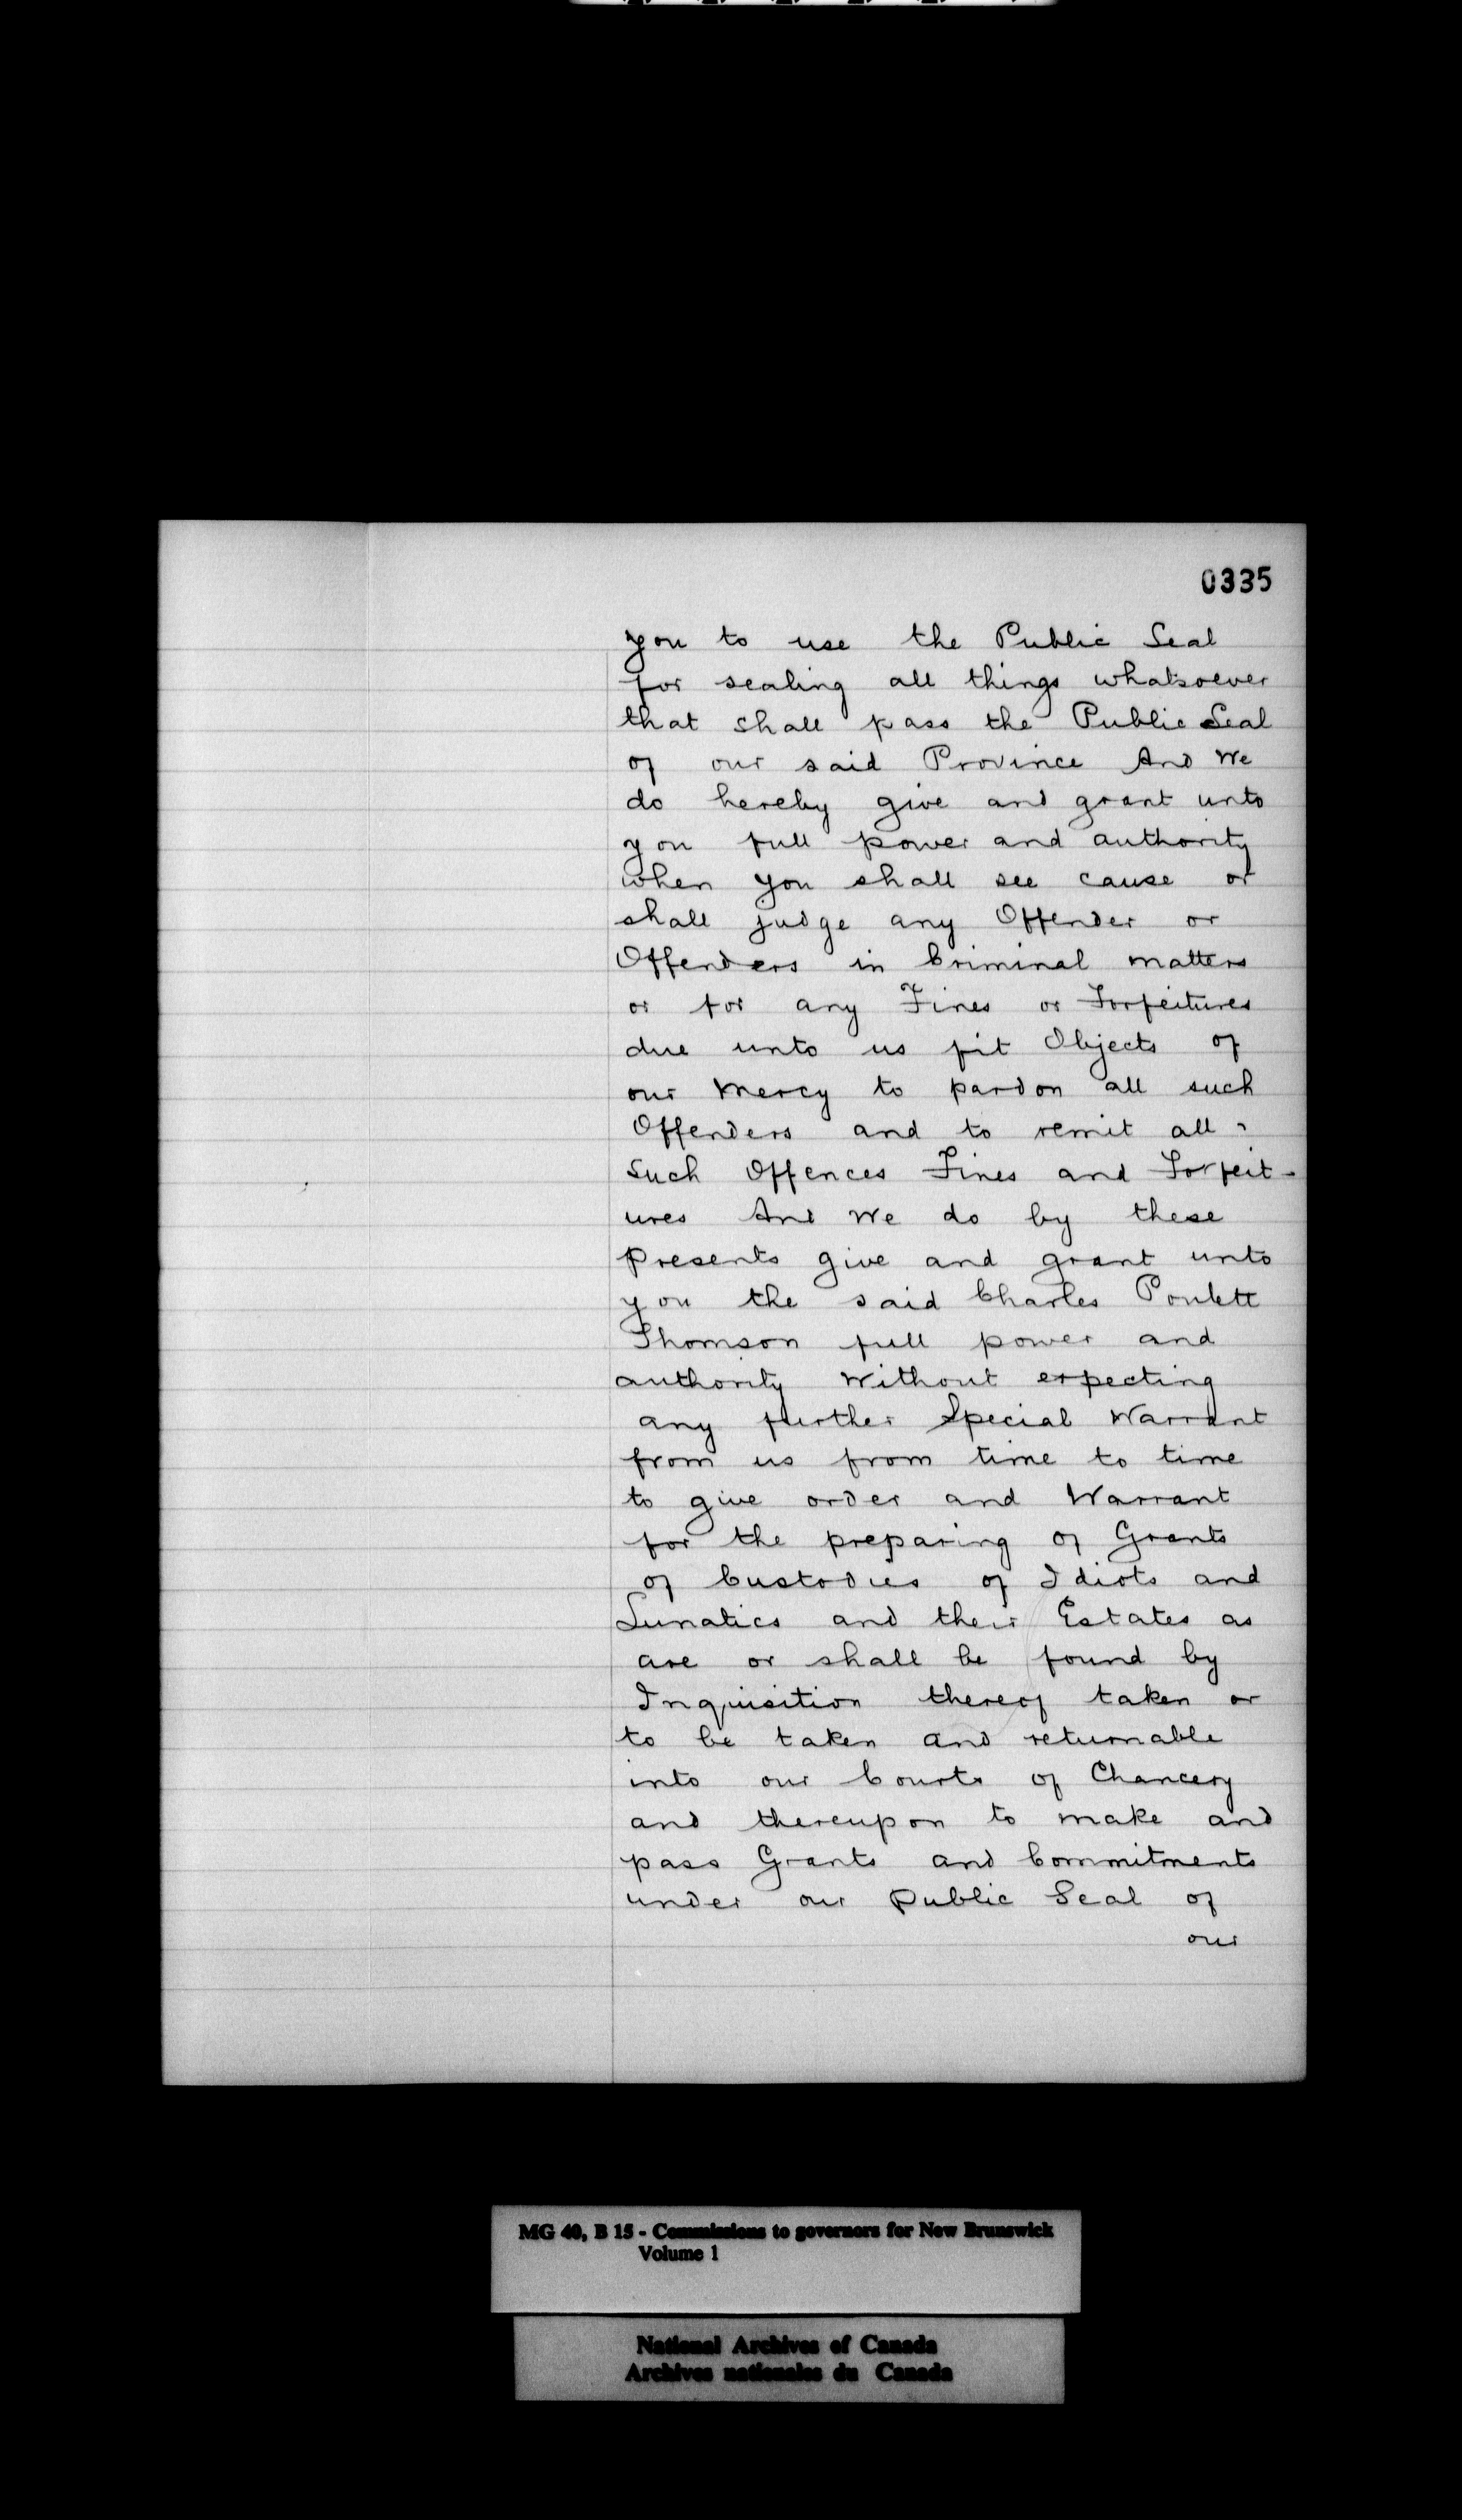 0335
you to use the Public Seal
for sealing all things whatsoever
that shall pass the Public Seal
of our said Province And We
do hereby give and grant unto
you full power and authority
when you shall see cause or
shall judge any Offender or
Offenders in Criminal matters
or for any Fines or Forfeitures
due unto us fit Objects of
our Mercy to pardon all such
Offenders and to remit all
Such Offences Fines and Forfeit-
ures And We do by these
Presents give and grant unto
you the said Charles Poulett
Thomson full power and
authority Without expecting
any further Special Warrant
from us from time to time
to give order and Warrant
for the preparing of Grants
of Custodies of Idiots and
Lunatics and their Estates as
are or shall be found by
Inquisition thereof taken or
to be taken and returnable
into our Courts of Chancery
and thereupon to make and
pass Grants and Commitments
under our Public Seal of
our
MG 40, B 15 - Commissions to governors for New Brunswick
Volume 1
National Archives of Canada
Archives nationales du Canada